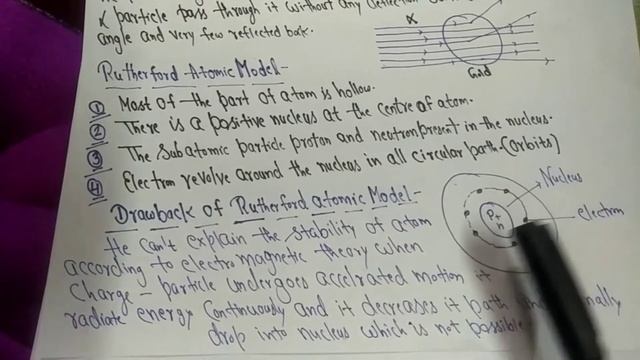 α particle pass through it without any deflection
angle and very few reflected back.
α
Gold
Rutherford Atomic Model-
① Most of the part of atom is hollow.
② There is a positive nucleus at the centre of atom.
③ The subatomic particle proton and neutron present in the nucleus.
④ Electron revolve around the nucleus in all circular path (orbits)
Drawback of Rutherford atomic Model:-
Nucleus
electron
P+
n
He can't explain the stability of atom
according to electromagnetic theory when
charge - particle undergoes acclrated motion it
radiate energy continuously and it decreases it path
drop into nucleus which is not possible